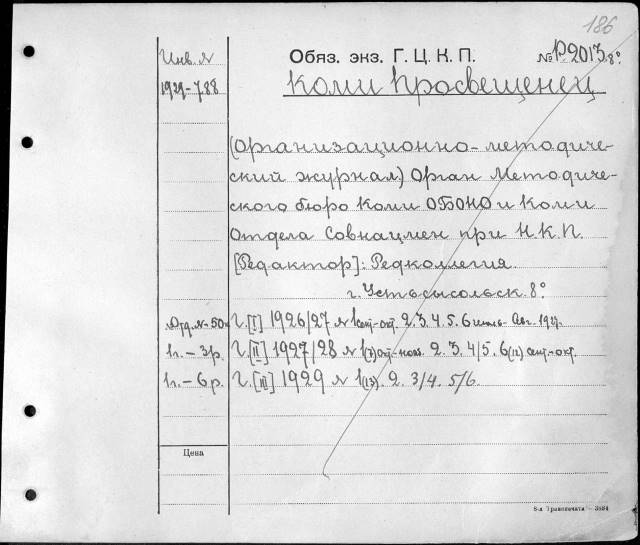 186
Инв. №
1929-788
Обяз. экз. Г. Ц. К. П.
№ Р2013 8°
Коми просвещенец
(Организационно-методиче-
ский журнал) Орган Методиче-
ского бюро Коми ОБОНО и Коми
Отдела Совнацмен при Н.К.П.
[Редактор]: Редколлегия.
г. Устьсысольск. 8°.
Отд. № 50к Г. [I] 1926/27 № 1 сент.-окт. 2. 3. 4. 5. 6 июль-Авг. 1927.
1г. - 3р. Г. [II] 1927/28 № 1(7) окт.-нояб. 2. 3. 4/5. 6(12) сент-окт.
1г. - 6р. Г. [III] 1929 № 1(13). 2. 3/4. 5/6.
Цена
8-я Транспечати - 3584